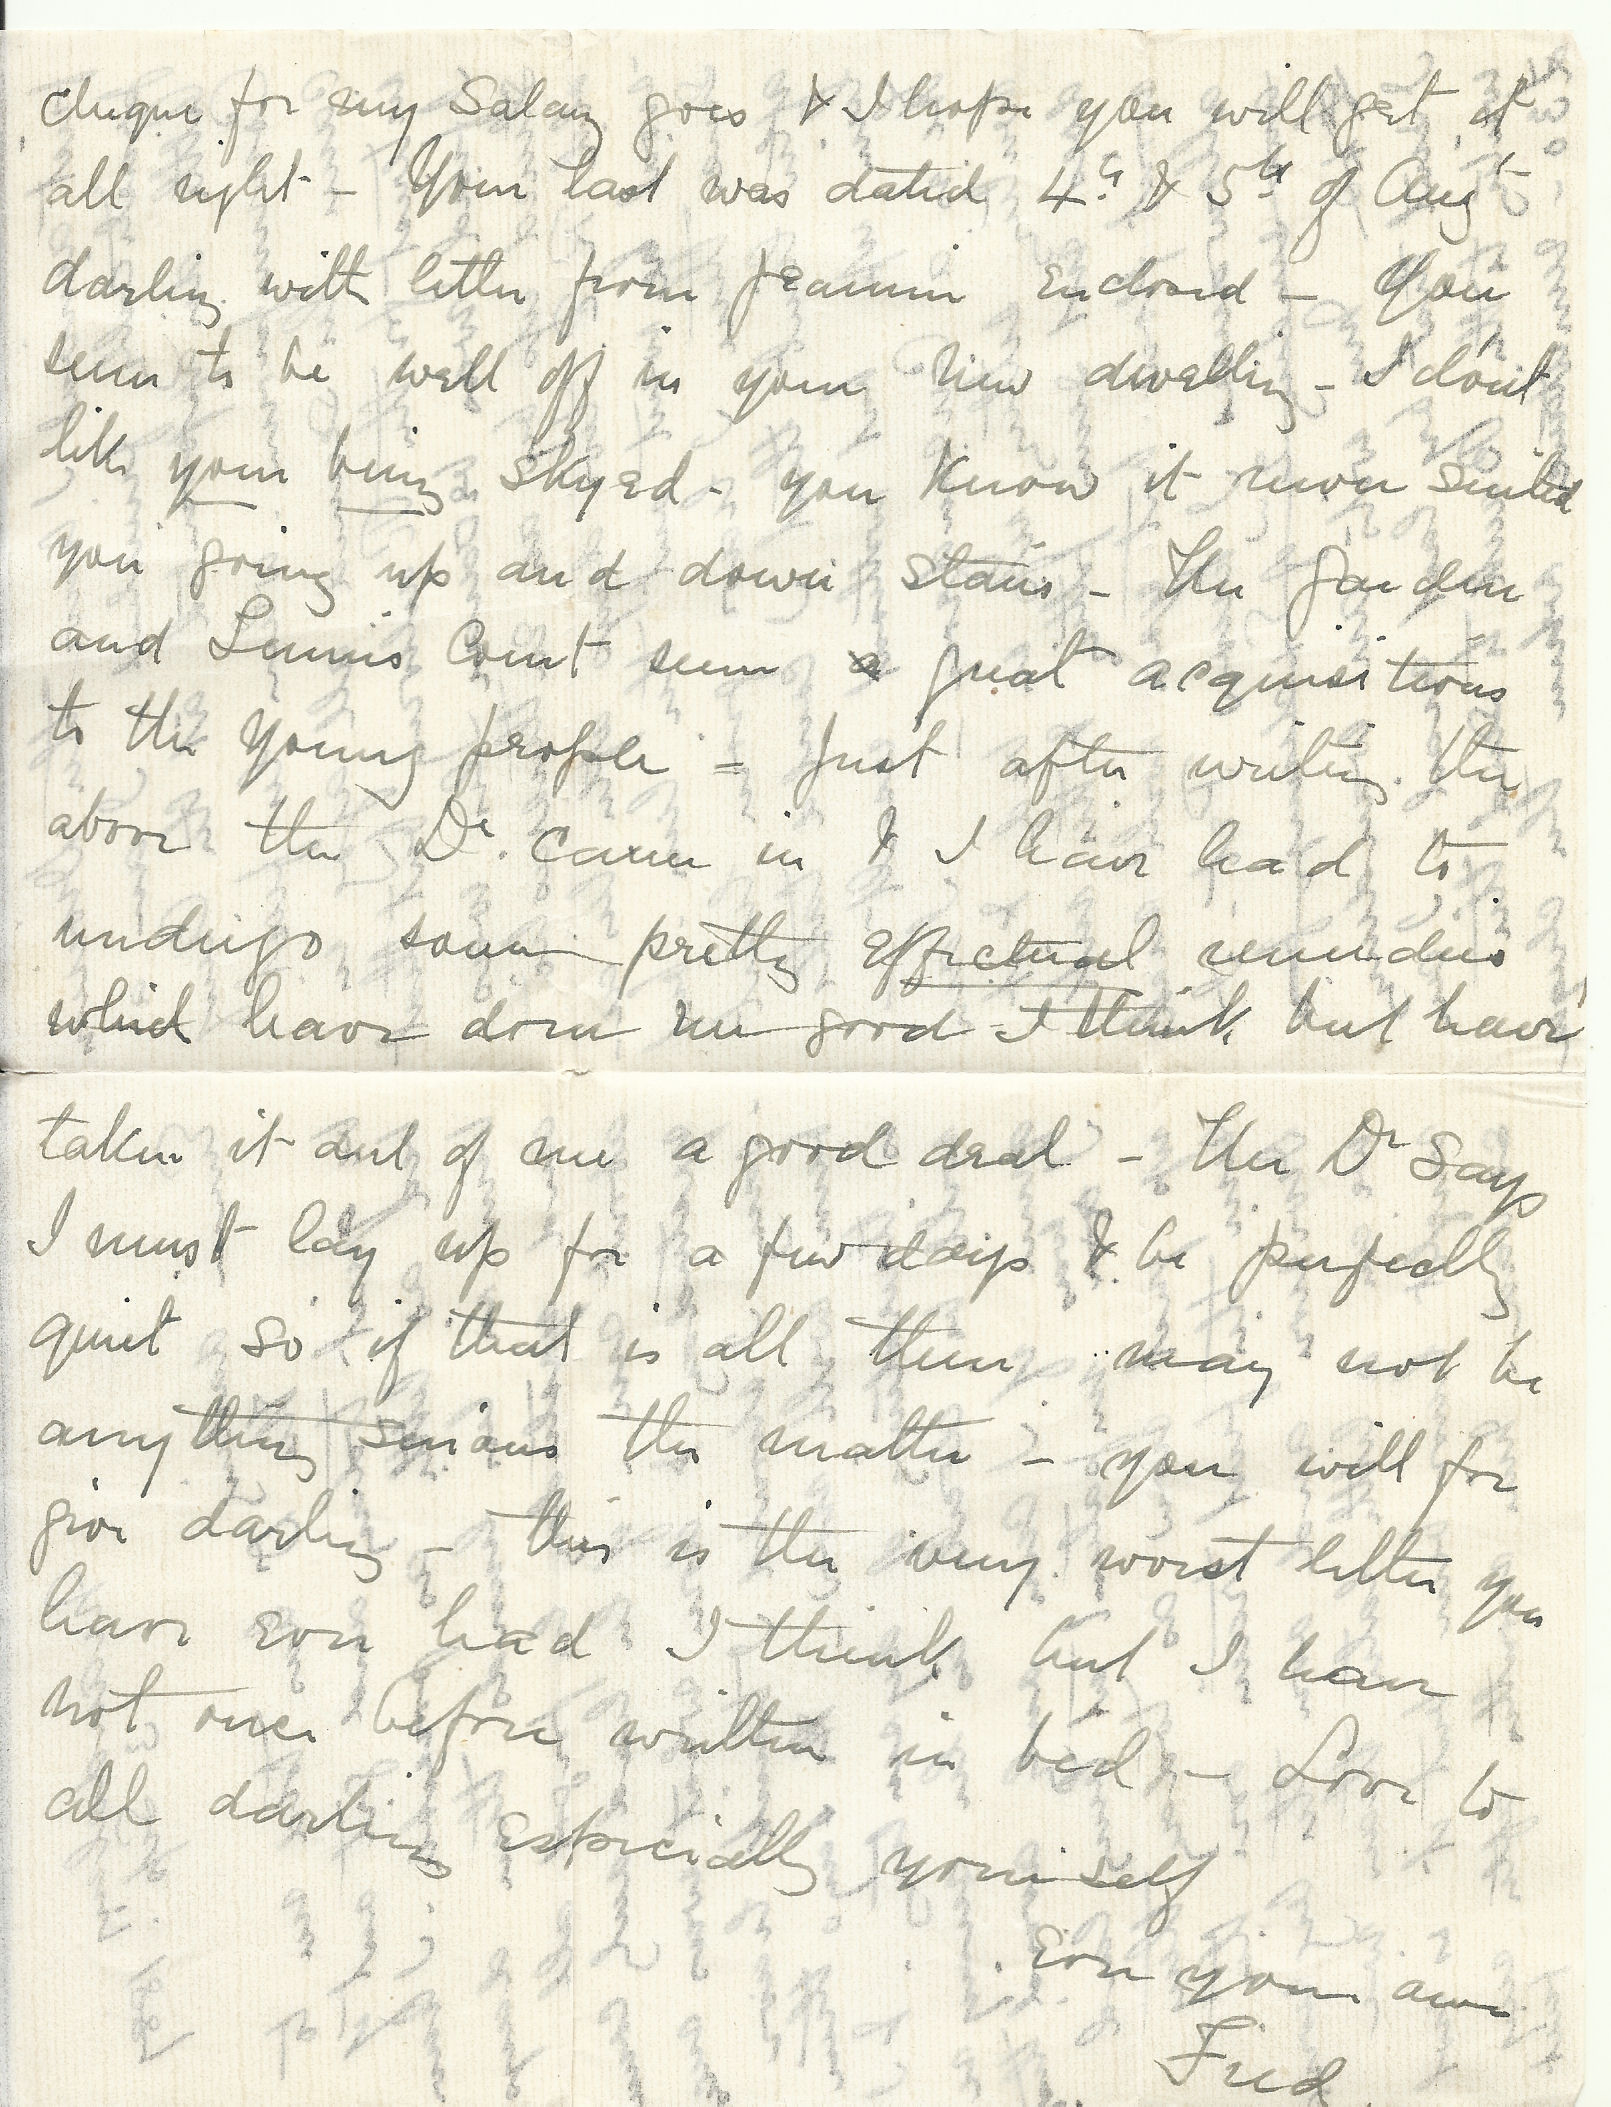 cheque for my Salary goes & I hope you will get it
all right - Your last was dated 4th & 5th of Augt
darling with letter from Jeannie enclosed - You
seem to be well off in your new dwelling - I don't
like your being skyed - you know it never suited
you going up and down stairs - The garden
and Tennis Court seem a great acquisitions
to the young people = Just after writing the
above the Dr. came in & I have had to
undergo some pretty effectual remedies
which have done me good I think but have
taken it out of me a good deal - The Dr says
I must lay up for a few days & be perfectly
quiet so if that is all there may not be
anything serious the matter - you will for
give darling - this is the very worst letter you
have ever had I think but I have
not once before written in bed - Love to
all darling especially yourself
Ever your own
Fred